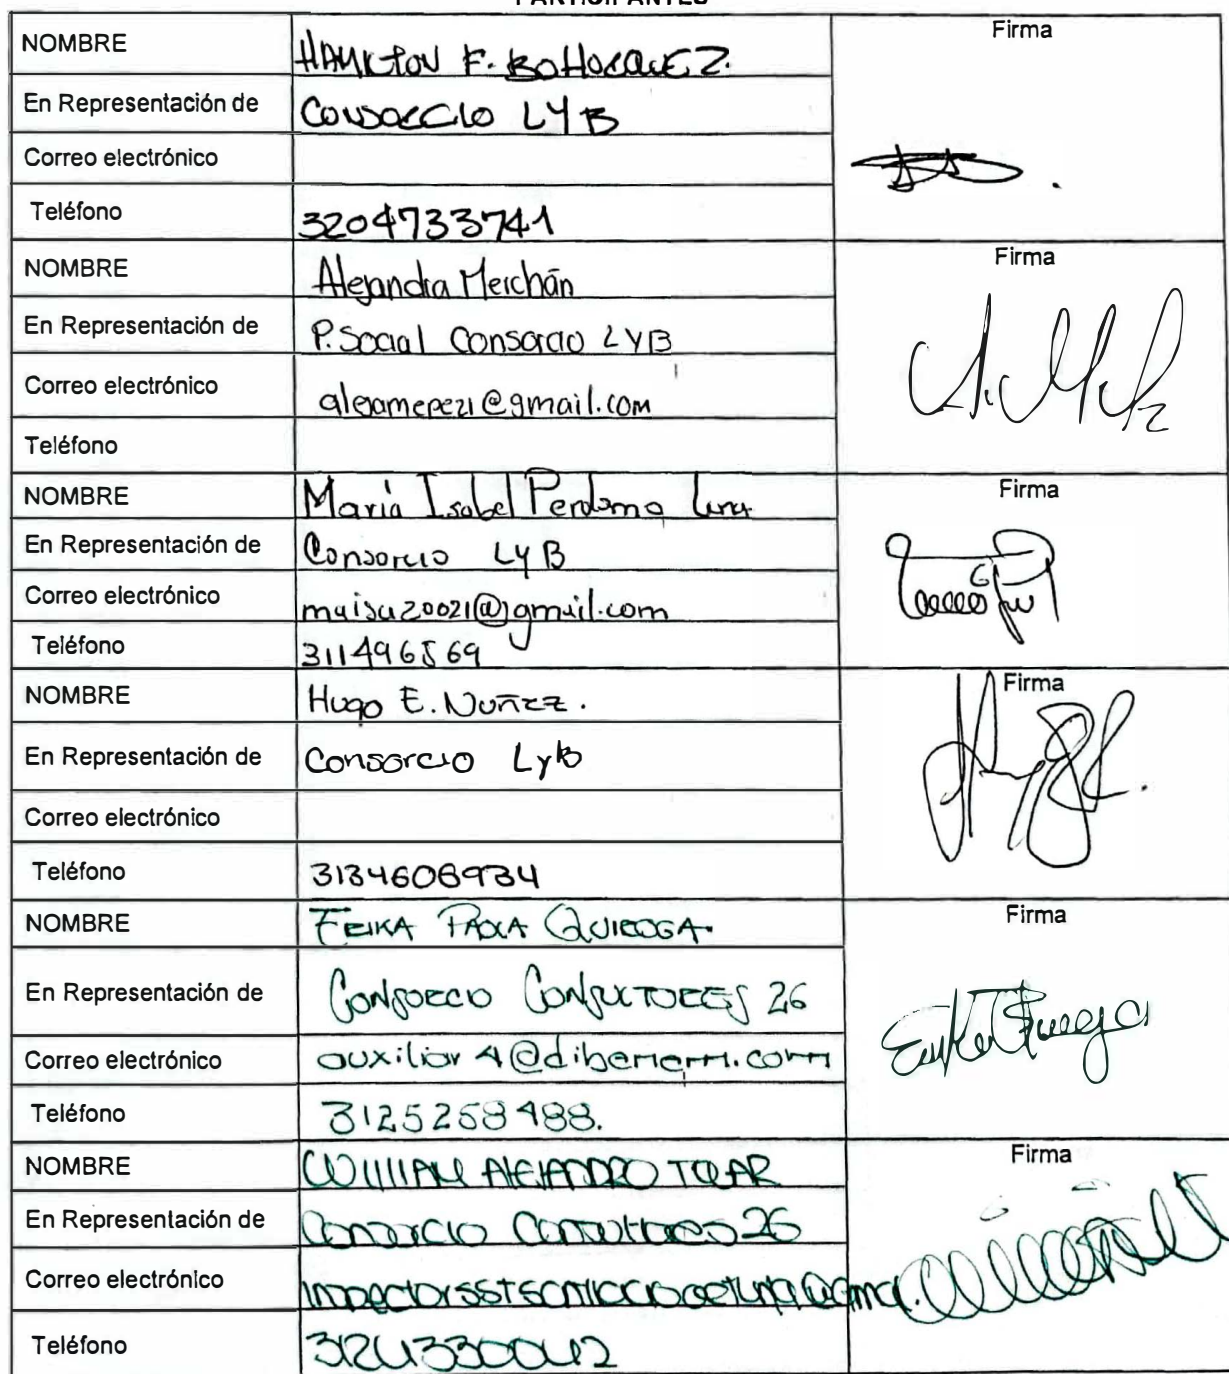 PARTICIPANTES
NOMBRE HAMILTON F. BOHORQUEZ. Firma
En Representación de CONSORCIO LYB
Correo electrónico
Teléfono 3204733741
NOMBRE Alejandra Merchán Firma
En Representación de P. Social Consorcio LYB
Correo electrónico alejamepez1@gmail.com
Teléfono
NOMBRE María Isabel Perdomo Luna Firma
En Representación de Consorcio LYB
Correo electrónico maisa20021@gmail.com
Teléfono 311496569
NOMBRE Hugo E. Nuñez. Firma
En Representación de Consorcio LyB
Correo electrónico
Teléfono 3134606934
NOMBRE ERIKA PAOLA QUIROGA. Firma
En Representación de CONSORCIO CONSULTORES 26
Correo electrónico auxiliar4@dibenem.com
Teléfono 3125258488.
NOMBRE WILLIAM ALEJANDRO TOVAR Firma
En Representación de Consorcio Consultores 26
Correo electrónico
Teléfono 3124330042